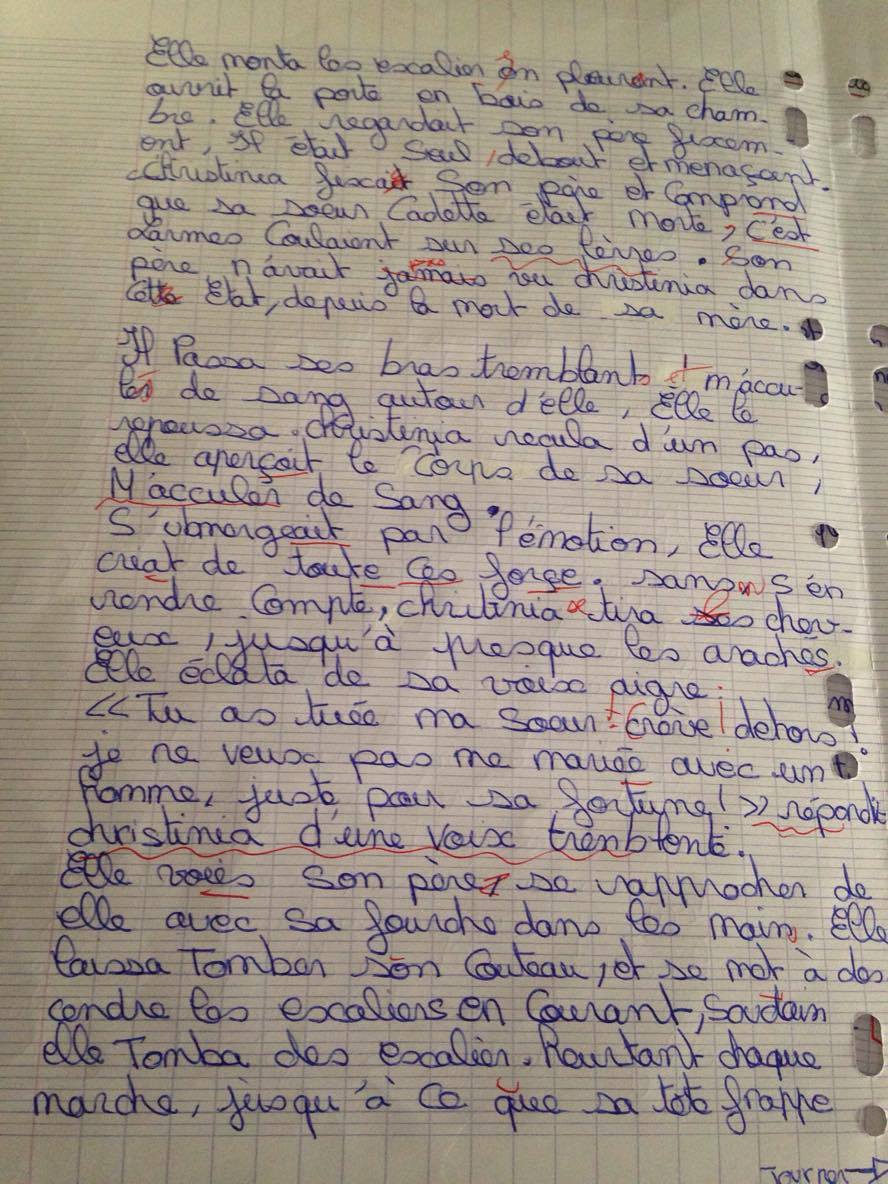 Elle monta les escalier en pleurant. Elle
ouvrit la porte en bois de sa cham-
bre. Elle regardait son père fixem-
ent, Il était Seul, debout et menaçant.
Christinia fixait Son père et Comprend
que sa soeur Cadette était morte, c'est
Larmes Coulaient sur ses lèvres. Son
père n'avait jamais vu christinia dans
cette Etat, depuis la mort de sa mère.
Il Passa ses bras tremblants et m'accu-
lés de sang autour d'elle, Elle le
repoussa. Christinia recula d'un pas,
elle aperçoit le Corps de sa soeur,
M'acculer de Sang.
S'ubmergeait par l'émotion, Elle
criat de toute Ces forse. sans s'en
rendre Compte, chritinia tira ses chev-
eux, jusqu'à presque les arachés.
Elle éclata de sa voix aigre:
<< Tu as tuée ma Soeur : crève ! dehors !
je ne veux pas me mariée avec un
homme, juste pour sa fortune ! >> répondit
christinia d'une voix trenblente.
Elle voiés Son père se rapprocher de
elle avec Sa fourche dans les mains. Elle
laissa Tomber son Couteau, et se met à des
cendre les escaliers en Courant, Soudain
elle Tomba des escalier. Heurtant chaque
marche, jusqu'à Ce que sa tête frappe
Tourner